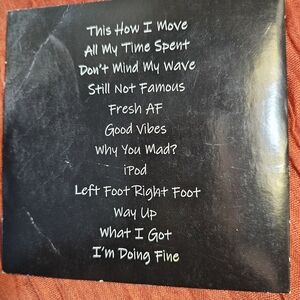 This How I Move
All My Time Spent
Don't Mind My Wave
Still Not Famous
Fresh AF
Good Vibes
Why You Mad?
iPod
Left Foot Right Foot
Way Up
What I Got
I'm Doing Fine